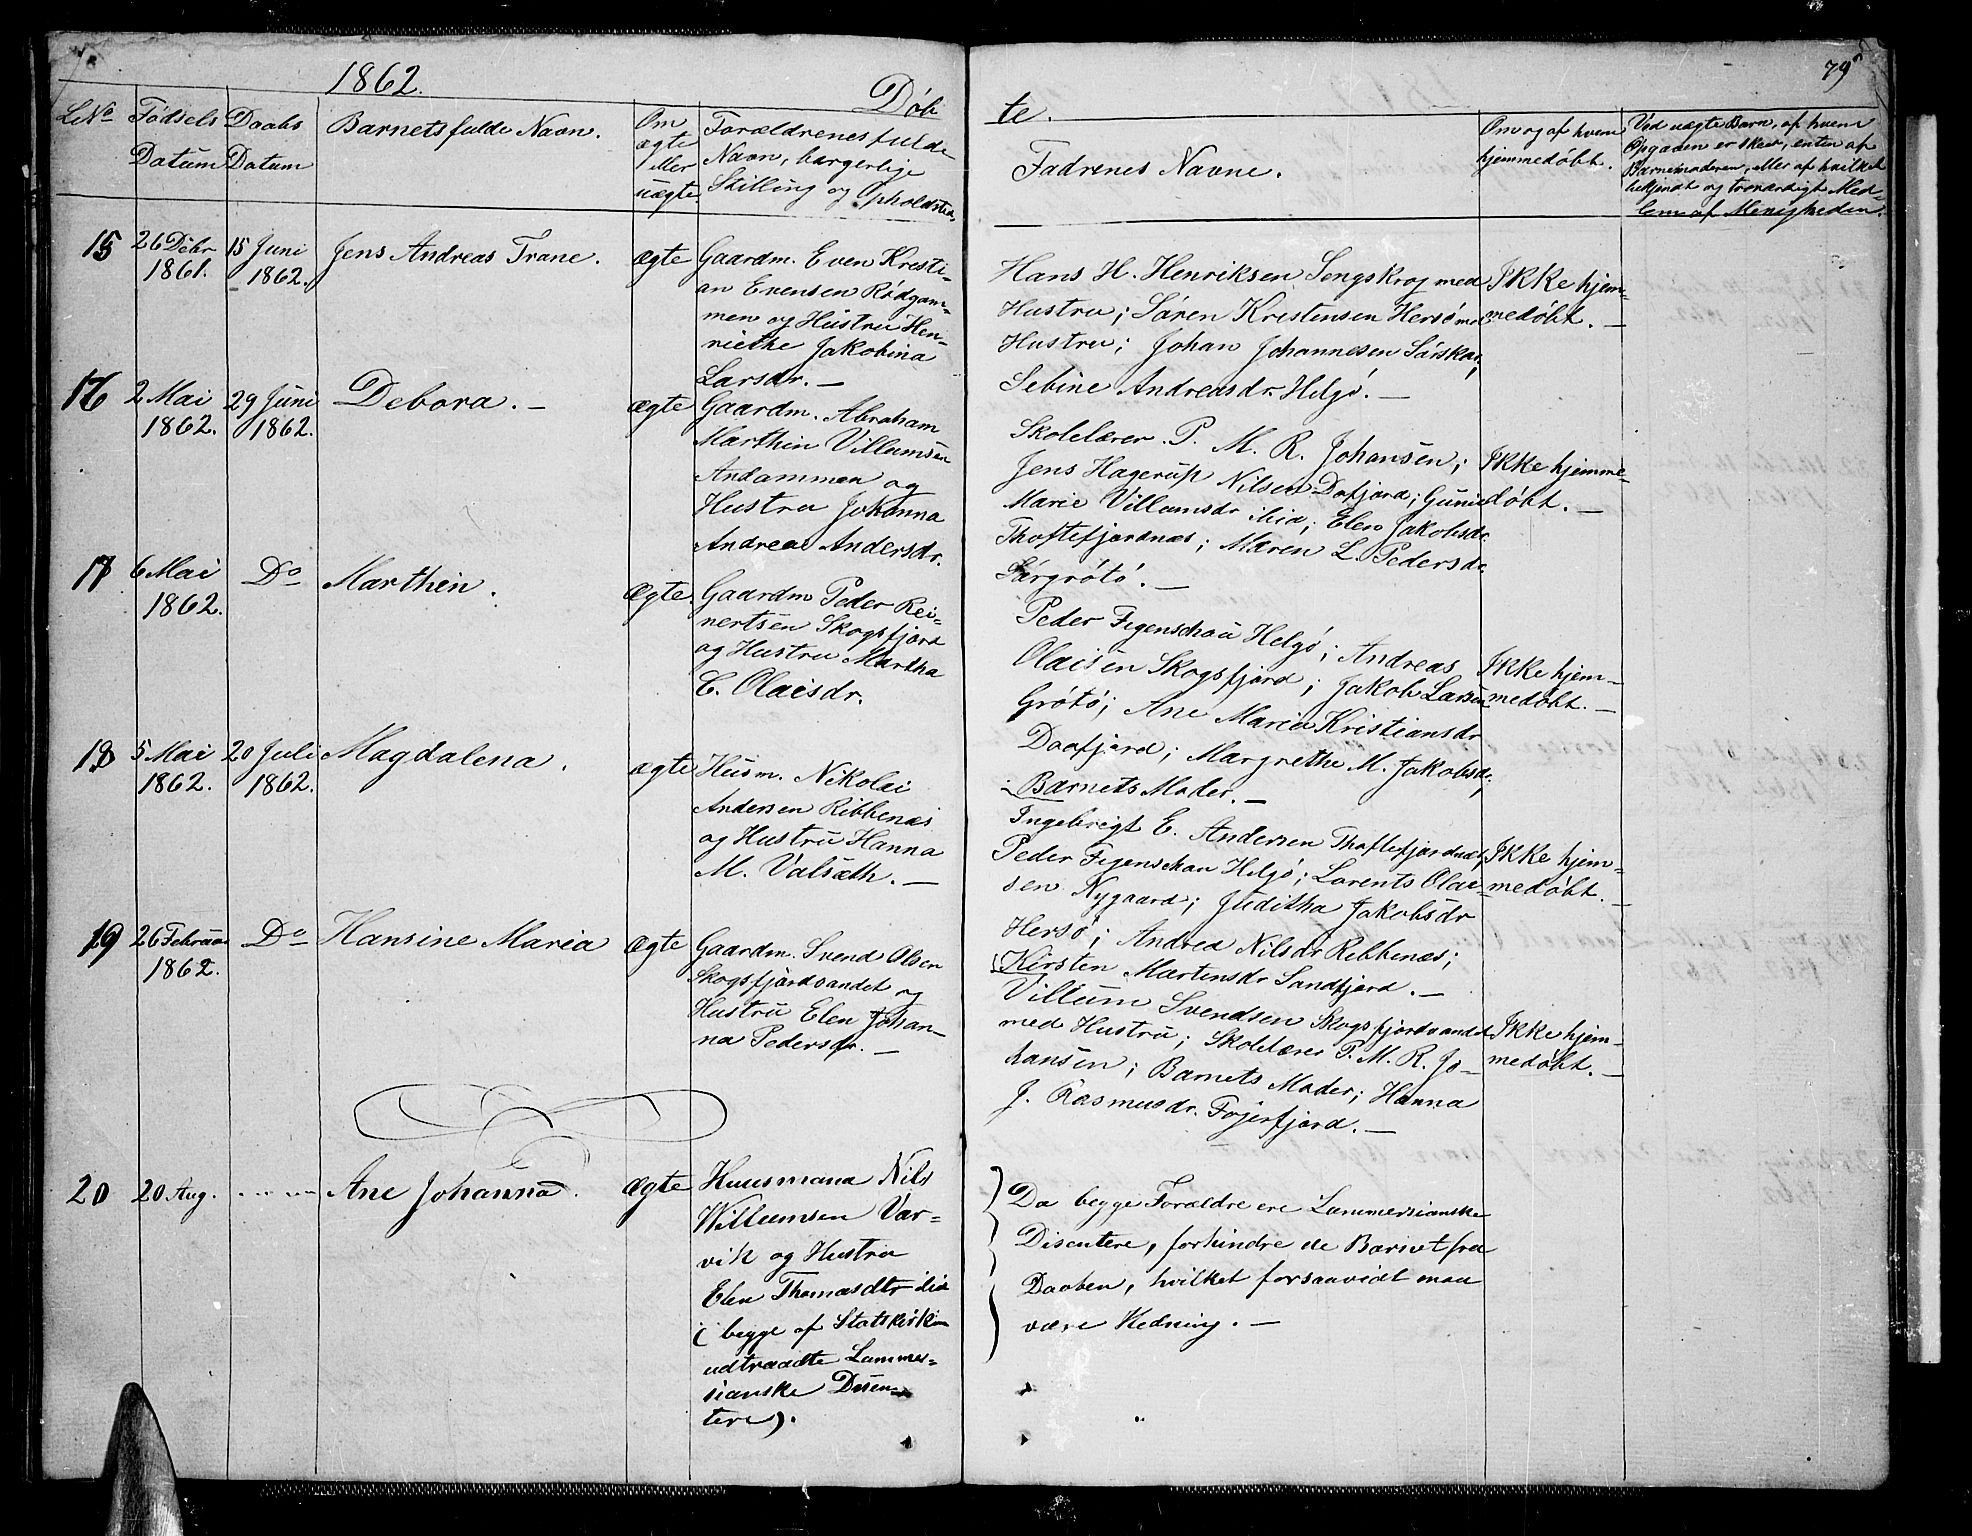 1862.
Döb
te.
79
L.No
Fødsels
Datum
Daabs
Datum
Barnets fulde Navn.
Om
ægte
eller
uægte
Forældrenes fulde
Navn, borgerlige
Stilling og Opholdsted.
Fadrenes Navne.
Om og af hvem
hjemmedøbt.
Ved uægte Barn, af hvem
Opgaven er skeet, enten af
Barnemoderen, eller af hvilket
bekjendt og troværdigt Med-
lem af Menigheden.
15
26 Debr
1861.
15 Juni
1862.
Jens Andreas Trane.
ægte
Gaardm. Even Kresti-
an Evensen Rödgam-
men og Hustru Hen-
riethe Jakobina
Larsdr. —
Hans H. Henriksen Sengskrog med
Hustru; Sören Kristensen Hersö med
Hustru; Johan Johannesen Sörskar;
Sebine Andreasdr. Helgö. —
Ikke hjem-
medöbt. —
16
2 Mai
1862.
29 Juni
1862.
Debora. —
ægte
Gaardm. Abraham
Marthin Villumsen
Andammen og
Hustru Johanna
Andrea Andersdr.
Skolelærer P. M. R. Johansen;
Jens Hagerup Nilsen Dafjord; Gunil
Marie Villumsdr ibid; Elen Jakobsdr
Thoftefjordnæs; Maren L. Pedersdr
Sörgrötö. —
Ikke hjemme-
döbt. —
17
6 Mai
1862.
Do
Marthin.
ægte.
Gaardm Peder Rei-
nertsen Skogsfjord
og Hustru Martha
C. Olaisdr.
Peder Figenschou Helgö; Andreas
Olaisen Skogsfjord; Jakob Larsen
Grötö; Ane Maria Kristiansdr
Daafjord; Margrethe M. Jakobsdr;
Barnets Moder. —
Ikke hjem-
medøbt. —
18
5 Mai
1862.
20 Juli
1862.
Magdalena.
ægte
Husm. Nikolai
Andersen Ribbenæs
og Hustru Hanna
M. Valsæth. —
Ingebrigt E. Andersen Thoftefjordnæs;
Peder Figenschau Helgö; Lorents Olai-
sen Nygaard; Juditha Jakobsdr
Hersö; Andrea Nilsdr Ribbenæs;
Kirsten Martensdr Sandfjord. —
Ikke hjem-
medöbt. —
19
26 Februar
1862.
Do
Hansine Maria
ægte
Gaardm. Svend Olsen
Skogsfjordvandet og
Hustru Elen Johan-
na Pedersdr. —
Villum Svendsen Skogsfjordvandet
med Hustru; Skolelærer P. M. R. Jo-
hansen; Barnets Moder; Hanna
J. Rasmusdr. Fojerfjord. —
Ikke hjem-
medöbt. —
20
20 Aug.
Ane Johanna.
ægte
Huusmand Nils
Willumsen Var-
vik og Hustru
Elen Thomasdtr ibid
(begge af Statskirken
udtraadte Lammer-
sianske Disen-
tere).
Da begge Forældre ere Lammersianske
Disentere, forhindre de Barnet fra
Daaben, hvilket forsaavidt maa
være Hedning. —